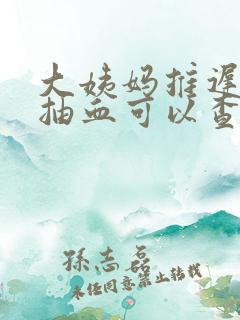 大姨妈推迟
抽血可以查
孫志磊
未任同意禁止转载